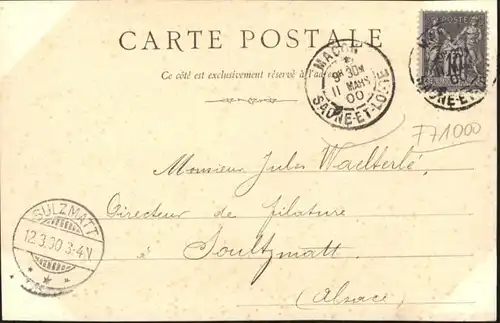 CARTE POSTALE
Ce côté est exclusivement réservé à l'adresse
POSTE
10
MACON
9H 30M
11 MARS
00
SAONE-ET-LOIRE
F71000
Monsieur Jules Waelterlé,
Directeur de filature
à Soultzmatt.
(Alsace)
SULZMATT
12.3.00 3-4 N